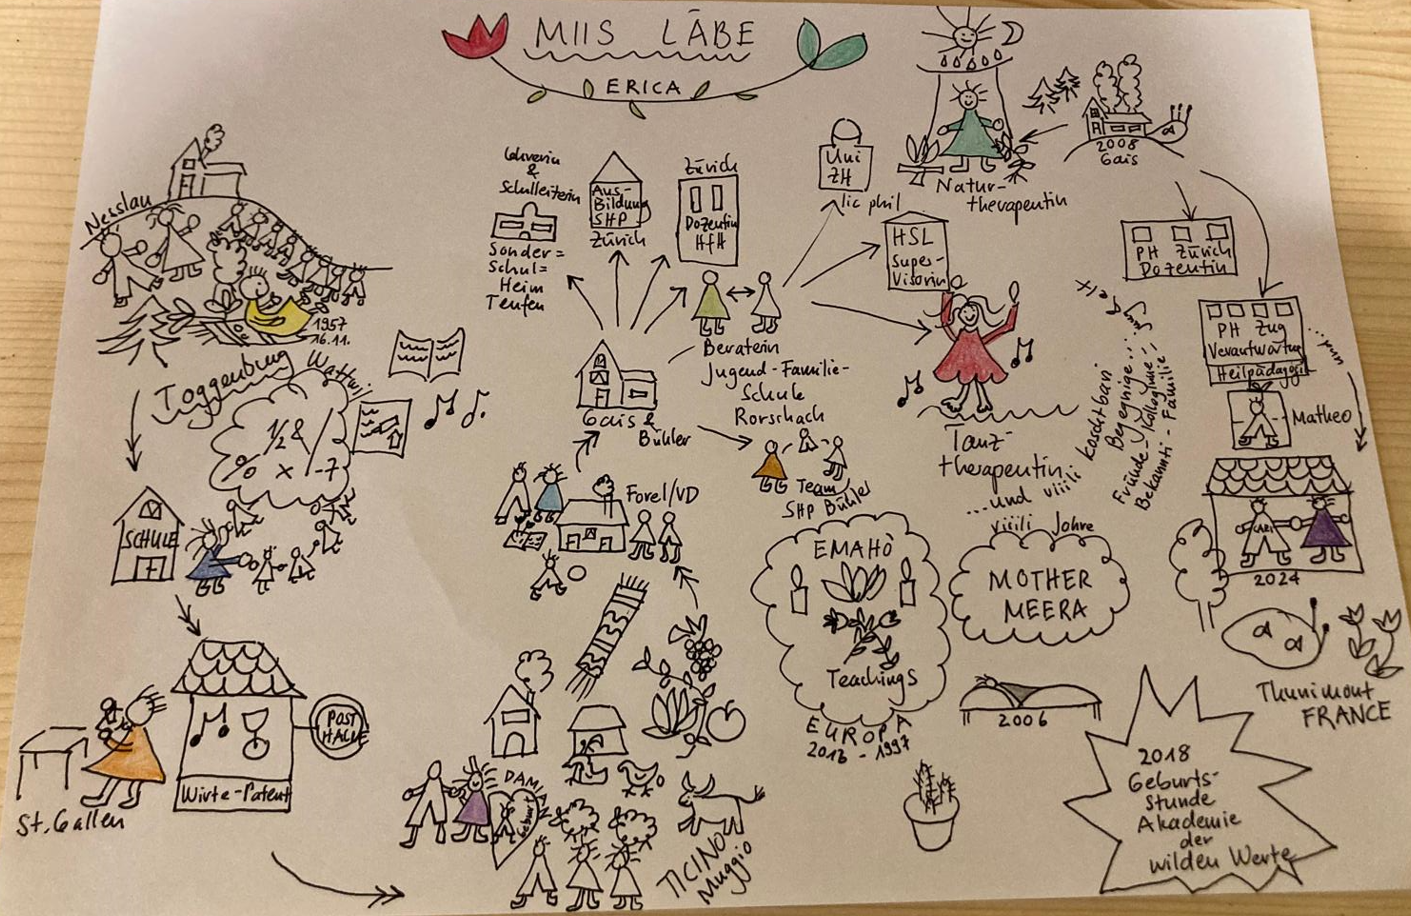 MIIS LÄBE
ERICA
Nesslau
1957
16.11.
Toggenburg
Wattwil
1/2 &
% x /-7
SCHULE
St. Gallen
Wirte-Patent
POST
HALLE
DAMI
Geburt
TICINO
Muggio
Forel/VD
Gais &
Bühler
Lehrerin
&
Schulleiterin
Sonder=
Schul=
Heim
Teufen
Aus-
Bildung
SHP
Zürich
Zürich
Dozentin
HfH
Beraterin
Jugend-Familie-
Schule
Rorschach
Team
SHP Bühler
Uni
ZH
lic phil
HSL
Super-
Visorin
Tanz-
therapeutin
Natur-
therapeutin
2008
Gais
PH Zürich
Dozentin
PH Zug
Verantwortung
Heilpädagogik
Matheo
...und viiili koschtbari
Begegnige...
Fründe-Kolleginne-
Bekannti-Familie
viiili Johre
EMAHÒ
Teachings
EUROPA
2013 - 1997
MOTHER
MEERA
2006
CARI
2024
Thunimont
FRANCE
2018
Geburts-
stunde
Akademie
der
wilden Werte